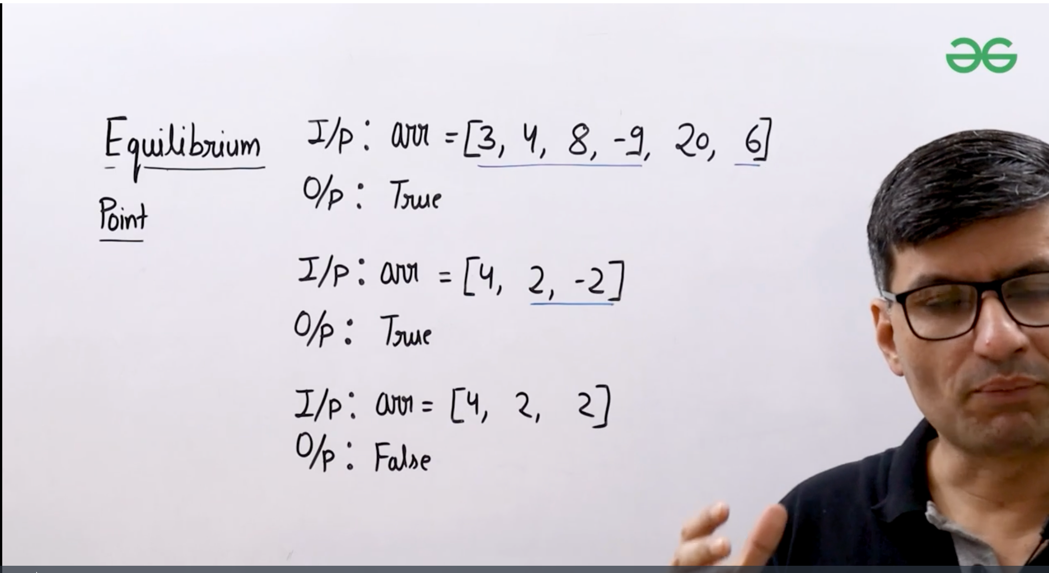 Equilibrium
Point
I/p: arr = [3, 4, 8, -9, 20, 6]
O/p: True
I/p: arr = [4, 2, -2]
O/p: True
I/p: arr = [4, 2, 2]
O/p: False